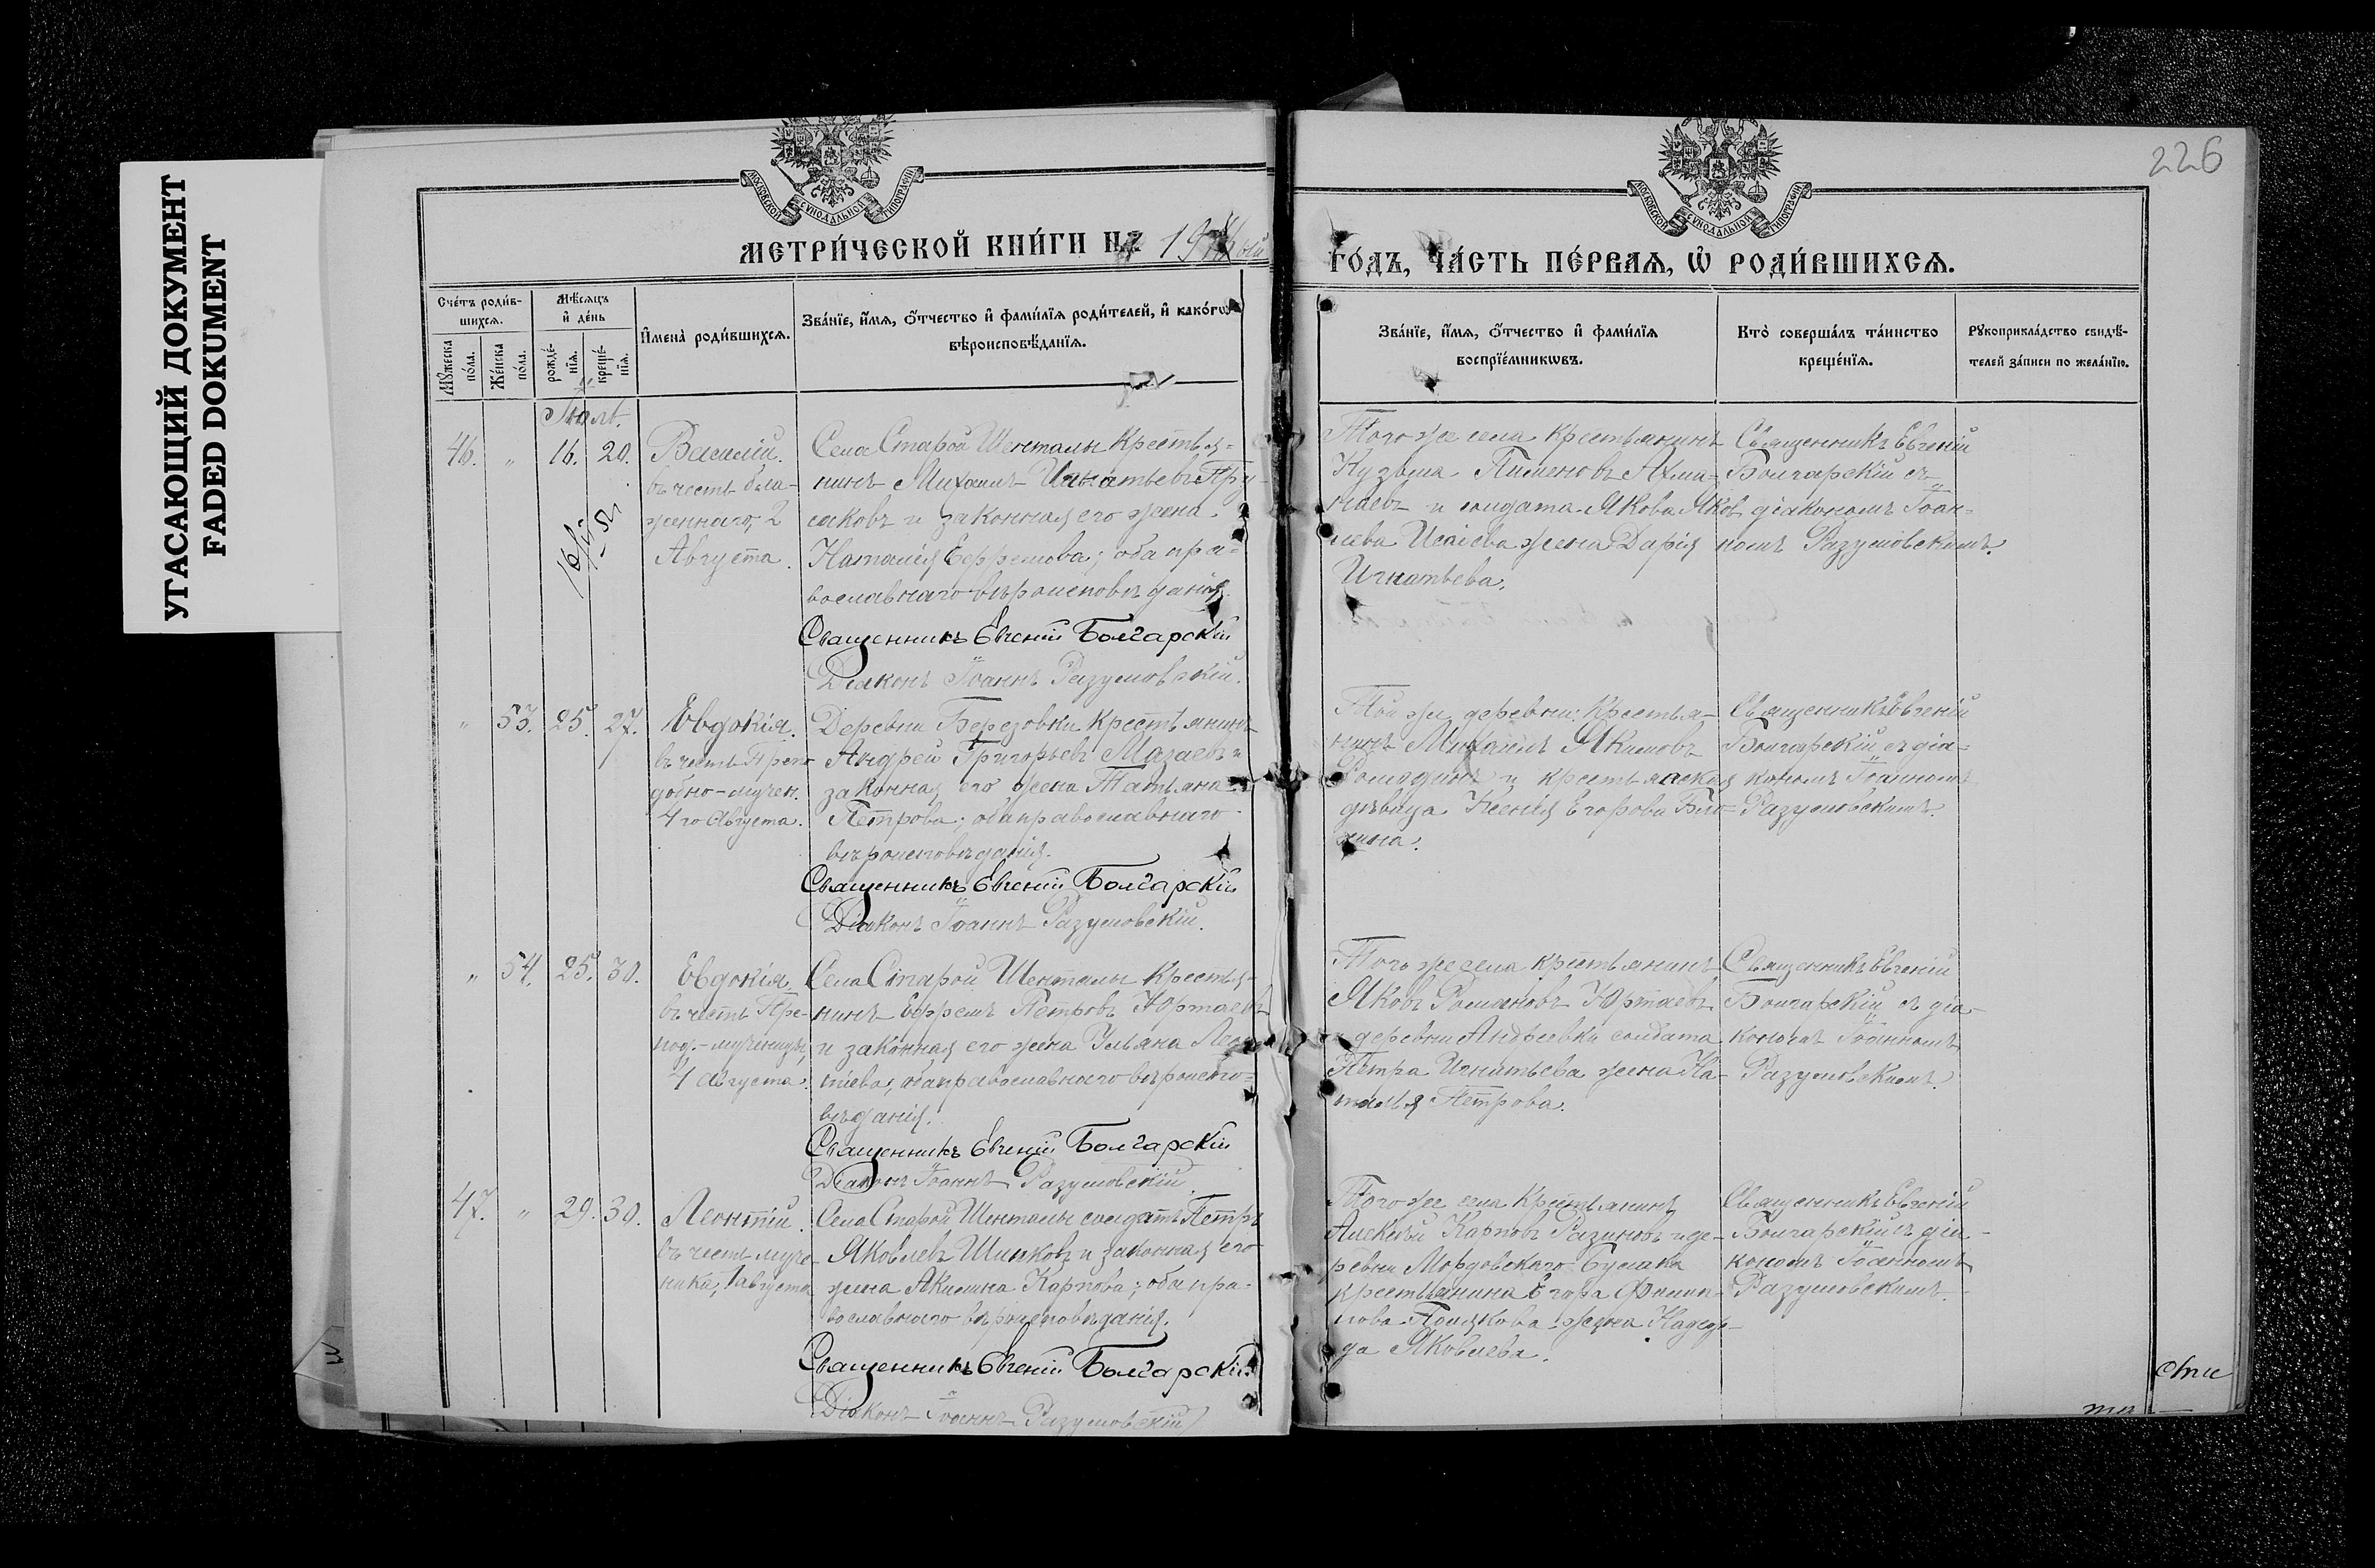 УГАСАЮЩИЙ ДОКУМЕНТ
FADED DOKUMENT
226
МОСКОВСКОЙ СѴНОДАЛЬНОЙ ТИПОГРАФІИ
МОСКОВСКОЙ СѴНОДАЛЬНОЙ ТИПОГРАФІИ
МЕТРИ́ЧЕСКОЙ КНИ́ГИ НА
ГО́ДЪ, ЧА́СТЬ ПЕ́РВАЯ, Ѡ РОДИ́ВШИХСЯ.
Сче́тъ роди́в-
шихся.
Мѣ́сяцъ
и де́нь
Мꙋ́жеска по́ла.
Же́нска по́ла.
рожде́-
нїя.
креще́-
нїя.
Имена̀ роди́вшихся.
Зва́нїе, и́мя, о́тчество и фами́лїя роди́телей, и како́гѡ
вѣроисповѣ́данїя.
Зва́нїе, и́мя, о́тчество и фами́лїя
воспрїе́мникѡвъ.
Кто̀ соверша́лъ та́инство
креще́нїя.
Рꙋкоприкла́дство свидѣ́-
телей за́писи по жела́нїю.
Іюль.
46. " 16. 20.
Василій.
въ честь бла-
женнаго, 2
Августа.
Села Старой Шенталы крестья-
нинъ Михаилъ Игнатьевъ Пру-
саковъ и законная его жена
Наталія Ефремова; оба пра-
вославнаго вѣроисповѣданія.
Священникъ Евгеній Болгарскій
Діаконъ Іоаннъ Разумовскій.
Того же села крестьянинъ
Кузьма Пименовъ
и солдата Якова Яков-
лева Исаева жена Дарія
Игнатьева.
Священникъ Евгеній
Болгарскій съ
діакономъ Іоан-
номъ Разумовскимъ.
" 53. 25. 27.
Евдокія.
въ честь Препо
добно-мучен.
4 го Августа.
Деревни Березовки крестьянинъ
Андрей Григорьевъ Мазаевъ и
законная его жена Татьяна
Петрова; оба православнаго
вѣроисповѣданія.
Священникъ Евгеній Болгарскій
Діаконъ Іоаннъ Разумовскій.
Той же деревни: крестья-
нинъ Михаилъ Якимовъ
и крестьянская
дѣвица Ксенія Егорова
Священникъ Евгеній
Болгарскій съ діа-
кономъ Іоанномъ
Разумовскимъ.
" 54. 25. 30.
Евдокія.
въ честь Пре-
под.-мученицы,
4 Августа.
Села Старой Шенталы крестья-
нинъ Ефремъ Петровъ Юртаевъ
и законная его жена Ульяна Леон-
тіева; оба православнаго вѣроиспо-
вѣданія.
Священникъ Евгеній Болгарскій
Діаконъ Іоаннъ Разумовскій.
Того же села крестьянинъ
Яковъ Романовъ Юртаевъ
и деревни Андреевки солдата
Петра Игнатьева жена На-
талья Петрова.
Священникъ Евгеній
Болгарскій съ діа-
кономъ Іоанномъ
Разумовскимъ.
47. " 29. 30.
Леонтій.
въ честь муче-
ника, 1 августа
Села Старой Шенталы солдатъ Петръ
Яковлевъ Шишковъ и законная его
жена Акилина Карпова; оба пра-
вославнаго вѣроисповѣданія.
Священникъ Евгеній Болгарскій
Діаконъ Іоаннъ Разумовскій
Того же села крестьянинъ
Алексѣй Карповъ Разиновъ и де-
ревни Мордовскаго Бугмака
крестьянина Егора Филип-
пова Полякова жена Надеж-
да Яковлева.
Священникъ Евгеній
Болгарскій съ діа-
кономъ Іоанномъ
Разумовскимъ.